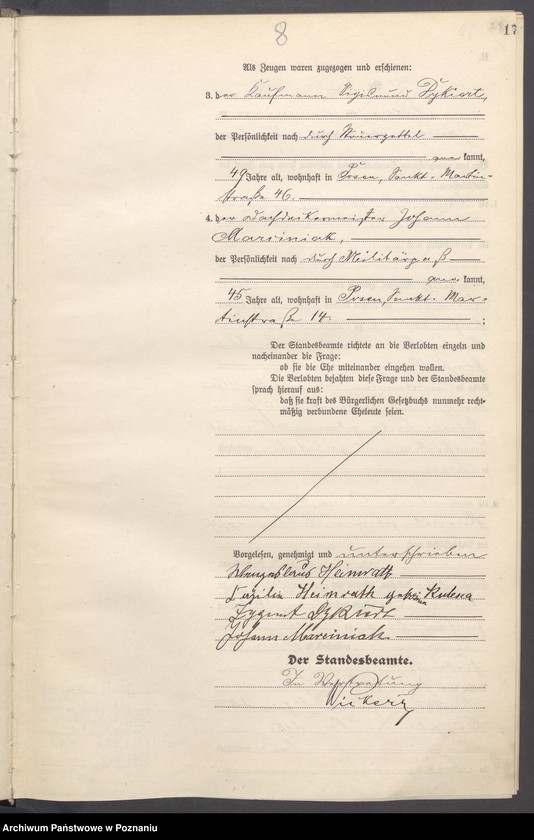 8
17
Als Zeugen waren zugezogen und erschienen:
3. der Kaufmann Sigismund Dykiert,
der Persönlichkeit nach durch Steuerzettel
kannt,
49 Jahre alt, wohnhaft in Posen, Sankt-Martin-
straße 46.
4. der Dachdeckermeister Johann
Marciniak,
der Persönlichkeit nach durch Militärpaß
kannt,
45 Jahre alt, wohnhaft in Posen, Sankt-Mar-
tinstraße 14. ;
Der Standesbeamte richtete an die Verlobten einzeln und
nacheinander die Frage:
ob sie die Ehe miteinander eingehen wollen.
Die Verlobten bejahten diese Frage und der Standesbeamte
sprach hierauf aus:
daß sie kraft des Bürgerlichen Gesetzbuchs nunmehr recht-
mäßig verbundene Eheleute seien.
Vorgelesen, genehmigt und unterschrieben
Wenzeslaus Heinrath
Cäzilia Heinrath geborene
Zygmunt Dykiert
Johann Marciniak
Der Standesbeamte.
In Vertretung
Archiwum Państwowe w Poznaniu